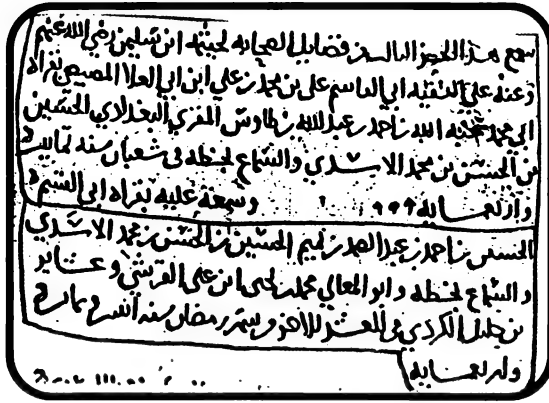 سمع هذا الجز الثالث من فضايل الصحابه لخيثمه ابن سليمن رضي الله عنهم
وعنه على الفقيه ابي القاسم على بن محمد بن علي ابن ابي العلا المصيصي بقراه
ابي محمد هبة الله بن احمد بن عبد الله بن طاوس المقري البغدادي الحسين
بن الحسن بن محمد الاسدي والسماع بخطه في شعبان سنه ثمانين
واربعمايه وسمعه عليه بقراه ابي
الحسن بن احمد بن عبد الصمد بن تميم الحسين بن الحسن بن محمد الاسدي
والسماع بخطه وابو المعالي محمد بن يحيى ابن على القرشي وعشاير
بن خليل الكردي في العشر الاخر من شهر رمضان سنه اثنين وثمانين
واربعمايه